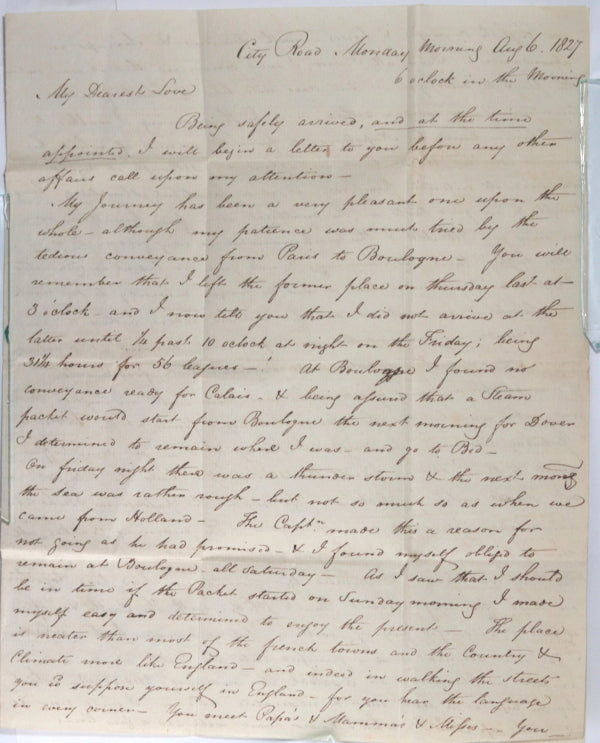 City Road Monday Morning Aug 6. 1827
6 oclock in the Morning
My Dearest Love
Being safely arrived, and at the time
appointed, I will begin a letter to you before any other
affairs call upon my attention —
My Journey has been a very pleasant one upon the
whole — although my patience was much tried by the
tedious conveyance from Paris to Boulogne — You will
remember that I left the former place on thursday last at
3 o'clock — and I now tell you that I did not arrive at the
latter until ¼ past 10 oclock at night on the Friday; being
31¼ hours for 56 leagues —! At Boulogne I found no
conveyance ready for Calais — & being assured that a Steam
packet would start from Boulogne the next morning for Dover
I determined to remain where I was — and go to Bed —
On friday night there was a thunder storm & the next morng
the sea was rather rough — but not so much so as when we
came from Holland — The Captn. made this a reason for
not going as he had promised — & I found myself obliged to
remain at Boulogne all Saturday — As I saw that I should
be in time if the Packet started on Sunday morning I made
myself easy and determined to enjoy the present — The place
is neater than most of the french towns and the Country &
Climate more like England — and indeed in walking the streets
you suppose yourself in England — for you hear the language
in every corner — You meet Papa's & Mamma's & Misses — You